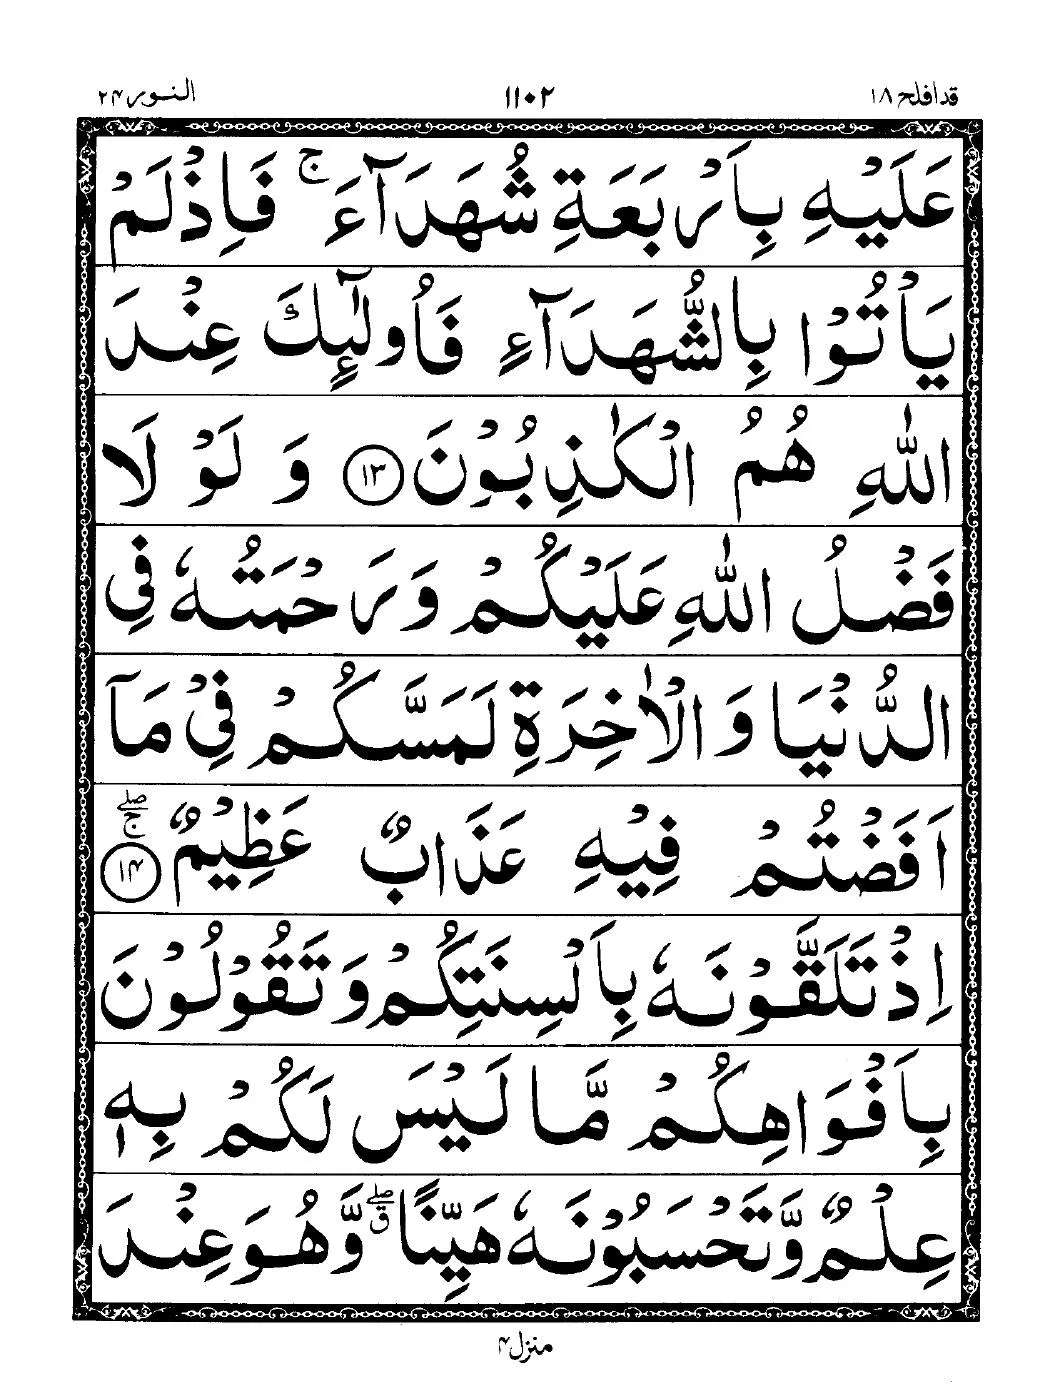 قد افلح ١٨
١١٠٢
النور ٢٤
عَلَيْهِ بِاَرْبَعَةِ شُهَدَآءَ ۚ فَاِذْ لَمْ
يَاْتُوْا بِالشُّهَدَآءِ فَاُولٰٓئِكَ عِنْدَ
اللّٰهِ هُمُ الْكٰذِبُوْنَ ﴿١٣﴾ وَ لَوْ لَا
فَضْلُ اللّٰهِ عَلَيْكُمْ وَ رَحْمَتُهٗ فِي
الدُّنْيَا وَ الْاٰخِرَةِ لَمَسَّكُمْ فِيْ مَاۤ
اَفَضْتُمْ فِيْهِ عَذَابٌ عَظِيْمٌ ﴿١٤﴾ ۖۚ
اِذْ تَلَقَّوْنَهٗ بِاَلْسِنَتِكُمْ وَ تَقُوْلُوْنَ
بِاَفْوَاهِكُمْ مَّا لَيْسَ لَكُمْ بِهٖ
عِلْمٌ وَّ تَحْسَبُوْنَهٗ هَيِّنًا ۖۗ وَّ هُوَ عِنْدَ
منزل ٤